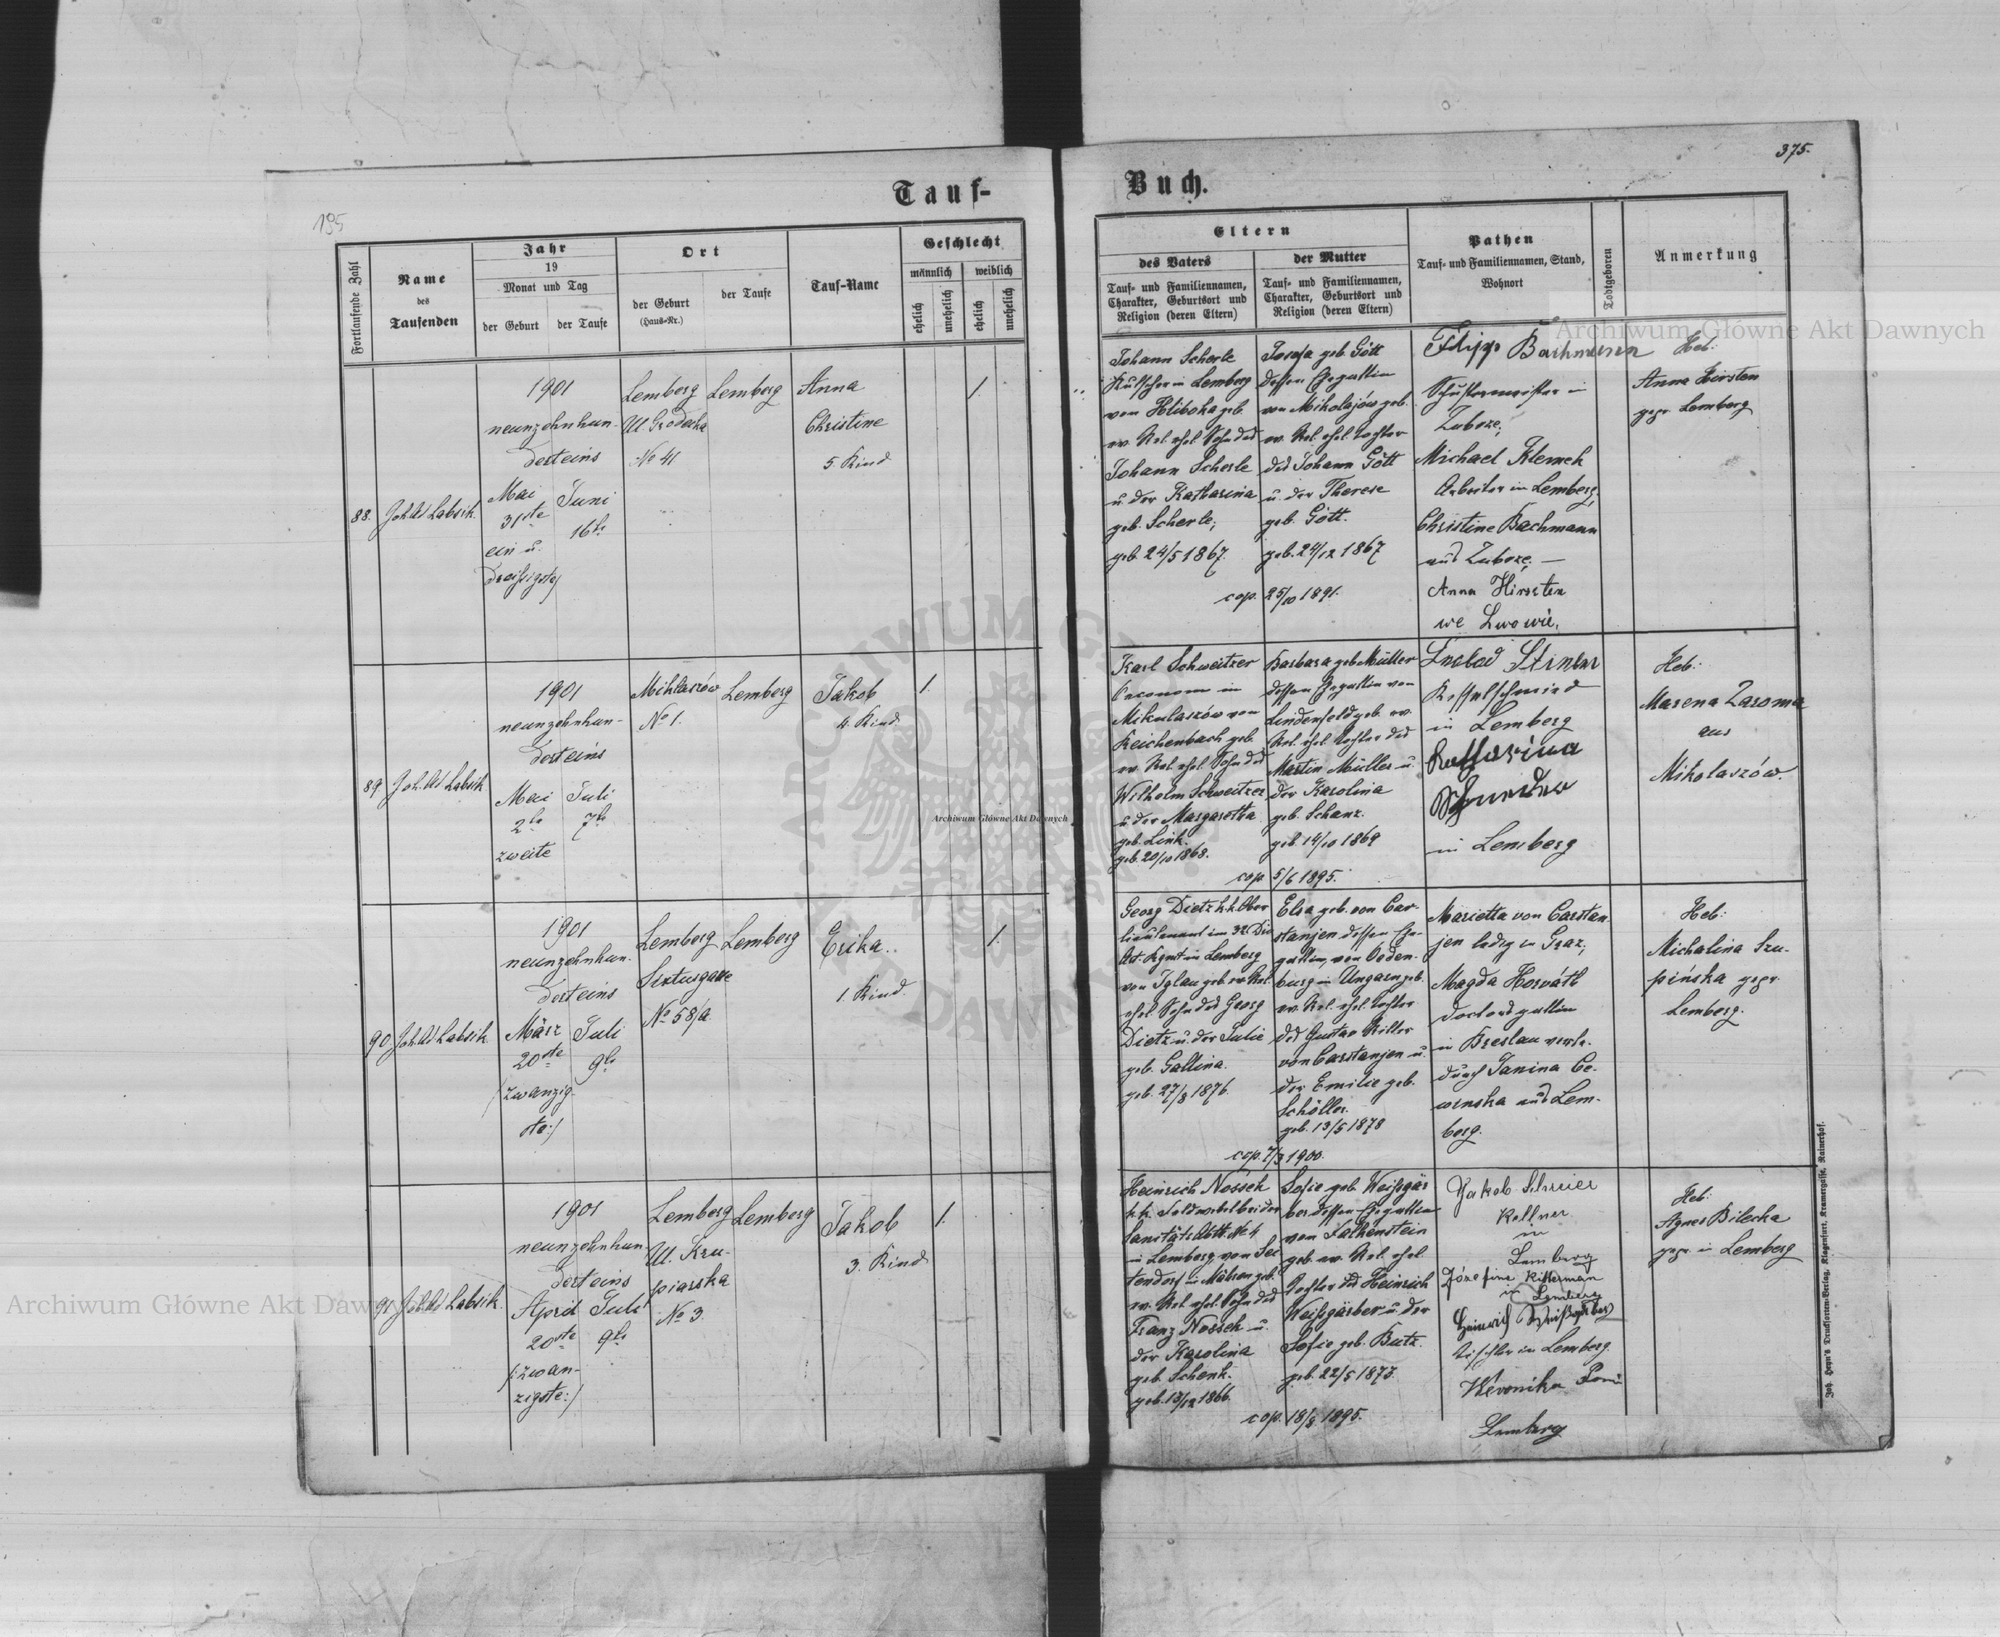 375.
195
Tauf-
Buch.
Fortlaufende Zahl
Name
des
Taufenden
Jahr
19
Monat und Tag
der Geburt
der Taufe
Ort
der Geburt
(Haus-Nr.)
der Taufe
Tauf-Name
Geschlecht
männlich
weiblich
ehelich
unehelich
ehelich
unehelich
Eltern
des Vaters
Tauf- und Familiennamen,
Charakter, Geburtsort und
Religion (deren Eltern)
der Mutter
Tauf- und Familiennamen,
Charakter, Geburtsort und
Religion (deren Eltern)
Pathen
Tauf- und Familiennamen, Stand,
Wohnort
Todtgeboren
Anmerkung
88.
Joh. Ad. Labsik
1901
neunzehnhun-
derteins
Mai
31ste
ein u.
dreißigste/
Juni
16te
Lemberg
Ul Grodecka
No 41
Lemberg
Anna
Christine
5. Kind
1.
Johann Scherle
Kutscher in Lemberg
von Hliboka geb.
ev. Rel. ehel. Sohn des
Johann Scherle
u. der Katharina
geb. Scherle;
geb. 24/5 1867.
Josefa geb. Gött
dessen Ehegattin
von Mikolajów geb.
ev. Rel. ehel. Tochter
des Johann Gött
u. der Therese
geb. Gött.
geb. 24/12 1867
cop. 25/10 1891.
Filipp Bachmann
Schustermeister in
Zuboze;
Michael Klemek
Arbeiter in Lemberg;
Christine Bachmann
aus Zuboze; —
Anna Hirsten
we Lwowie.
Heb:
Anna Hirsten
gepr. Lemberg
89
Joh. Ad. Labsik
1901
neunzehnhun-
derteins
Mai
2te
zweite
Juli
7te
Miklaszów
No 1.
Lemberg
Jakob
4. Kind
1.
Karl Schweitzer
Oeconom in
Mikulaszów von
Reichenbach geb.
ev. Rel. ehel. Sohn des
Wilhelm Schweitzer
u. der Margaretha
geb. Link.
geb. 20/10 1868.
Barbara geb. Müller
dessen Ehegattin von
Lindenfeld geb. ev.
Rel. ehel. Tochter des
Martin Müller u.
der Karolina
geb. Schanz.
geb. 14/10 1869
cop. 5/6 1895.
Kesselschmied
in Lemberg
Katharina
Schneider
in Lemberg
Heb:
Marena Zaroma
aus
Mikolaszów.
90
Joh. Ad. Labsik
1901
neunzehnhun-
derteins
März
20ste
/zwanzig-
ste:/
Juli
9te
Lemberg
Sixtusgasse
No 58/a
Lemberg
Erika.
1 Kind.
1.
Georg Dietz k.k. Ober
lieutenant im 32. Div
Art. Rgmt in Lemberg
von Iglau geb. ev. Rel.
ehel. Sohn des Georg
Dietz u. der Julie
geb. Gallina.
geb. 27/8 1876.
Elsa geb. von Car-
stanjen dessen Ehe-
gattin, von Oeden-
burg in Ungarn geb.
ev. Rel. ehel. Tochter
des Gustav Ritter
von Carstanjen u.
der Emilie geb.
Schöller.
geb. 13/5 1878
cop. 7/3 1900.
Marietta von Carstan-
jen ledig in Graz;
Magda Horváth
Doctorsgattin
in Breslau vertr.
durch Janina Ce-
winska aus Lem-
berg.
Heb:
Michalina Szu-
pińska gepr.
Lemberg.
91
Joh. Ad. Labsik
1901
neunzehnhun-
derteins
April
20ste
/:zwan-
zigste:/
Juli
9te
Lemberg
Ul. Kru-
piarska
No 3.
Lemberg
Jakob
3. Kind
1.
Heinrich Nossek
k.k. Feldwebel bei der
Sanitäts Abth. No 4
in Lemberg, von Sei
tendorf in Mähren geb.
ev. Rel. ehel. Sohn des
Franz Nossek u.
der Karolina
geb. Schenk.
geb. 13/12 1866.
Sofie geb. Weißgär
ber dessen Ehegattin
von Falkenstein
geb. ev. Rel. ehel.
Tochter des Heinrich
Weißgärber u. der
Sofie geb. Butz.
geb. 22/5 1873.
cop. 18/8 1895.
Jakob Schreier
Kellner
in
Lemberg
Józefine Ritterman
in Lemberg
Heinrich Weißgärber
Tischler in Lemberg.
Weronika
Lemberg
Heb:
Agnes Bilecka
gepr. in Lemberg
Joh. Heyn's Drucksorten-Verlag, Klagenfurt, Kramergasse, Rainerhof.
Archiwum Główne Akt Dawnych
Archiwum Główne Akt Dawnych
Archiwum Główne Akt Dawnych